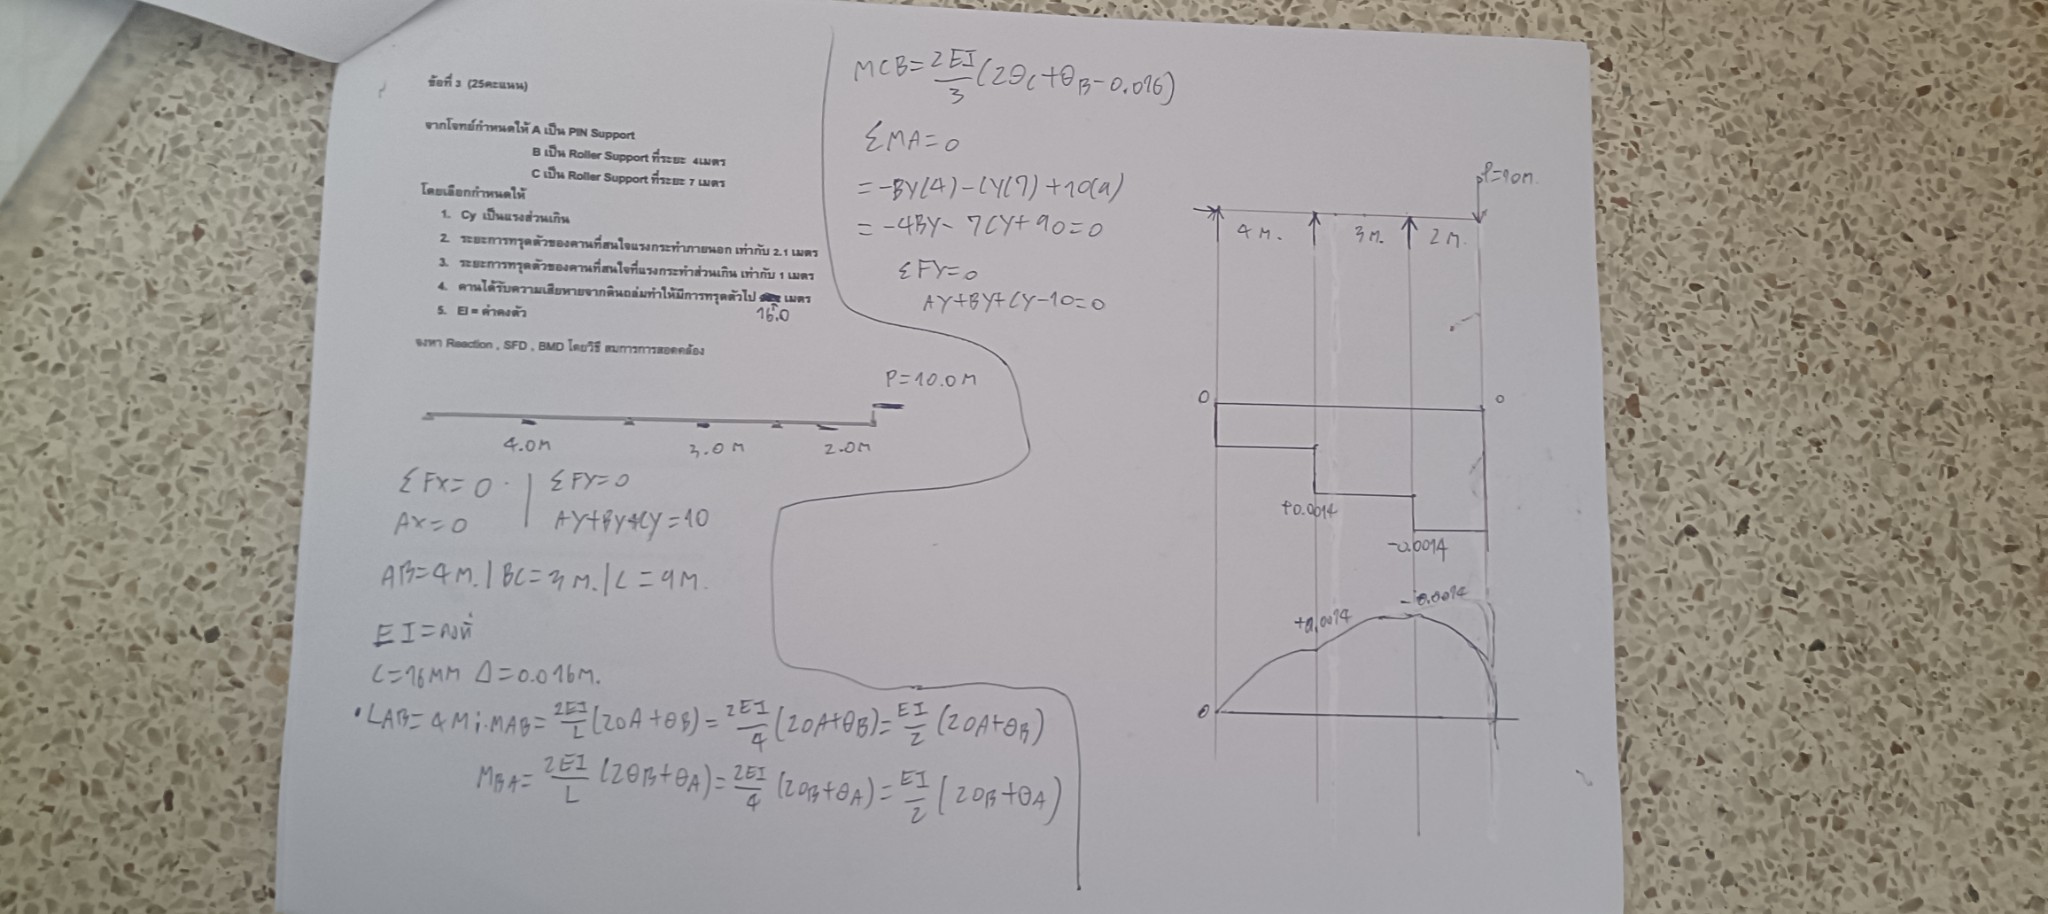 ข้อที่ 3 (25คะแนน)
จากโจทย์กำหนดให้ A เป็น PIN Support
B เป็น Roller Support ที่ระยะ 4เมตร
C เป็น Roller Support ที่ระยะ 7 เมตร
โดยเลือกกำหนดให้
1. Cy เป็นแรงส่วนเกิน
2. ระยะการทรุดตัวของคานที่สนใจแรงกระทำภายนอก เท่ากับ 2.1 เมตร
3. ระยะการทรุดตัวของคานที่สนใจที่แรงกระทำส่วนเกิน เท่ากับ 1 เมตร
4. คานได้รับความเสียหายจากดินถล่มทำให้มีการทรุดตัวไป เมตร
16.0
5. EI = ค่าคงตัว
จงหา Reaction , SFD , BMD โดยวิธี สมการการสอดคล้อง
P=10.0M
4.0M 3.0M 2.0M
ΣFX=0 | ΣFY=0
AX=0 AY+BY+CY=10
AB=4M. | BC=3M. | L=9M.
EI=คงที่
C=16MM Δ=0.016M.
•LAB=4M; MAB=2EI/L(2θA+θB)=2EI/4(2θA+θB)=EI/2(2θA+θB)
MBA=2EI/L(2θB+θA)=2EI/4(2θB+θA)=EI/2(2θB+θA)
MCB=2EI/3(2θC+θB-0.016)
ΣMA=0
=-BY(4)-CY(7)+10(9)
=-4BY-7CY+90=0
ΣFY=0
AY+BY+CY-10=0
P=10M.
4M. 3M. 2M.
0 0
+0.0014
-0.0014
+0.0014 -0.0014
0